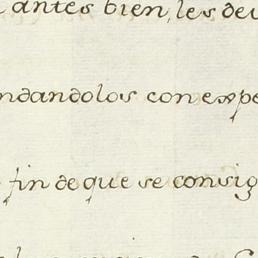 antes bien, les de
ndandolos con expe
fin de que se consig